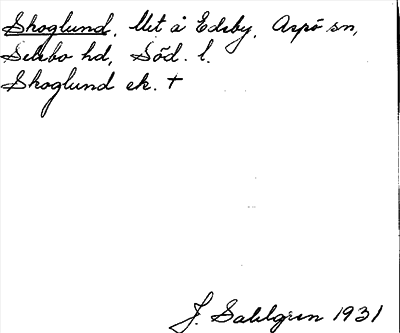 Skoglund, Utet å Edeby, Aspö sn,
Selebo hd, Söd. l.
Skoglund ek. †
J. Sahlgren 1931